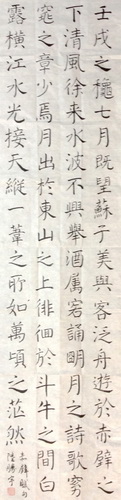 壬戌之穐七月既望蘇子美與客泛舟遊於赤壁之
下清風徐來水波不興舉酒屬客誦明月之詩歌窈
窕之章少焉月出於東山之上徘徊於斗牛之間白
露橫江水光接天縱一葦之所如萬頃之茫然